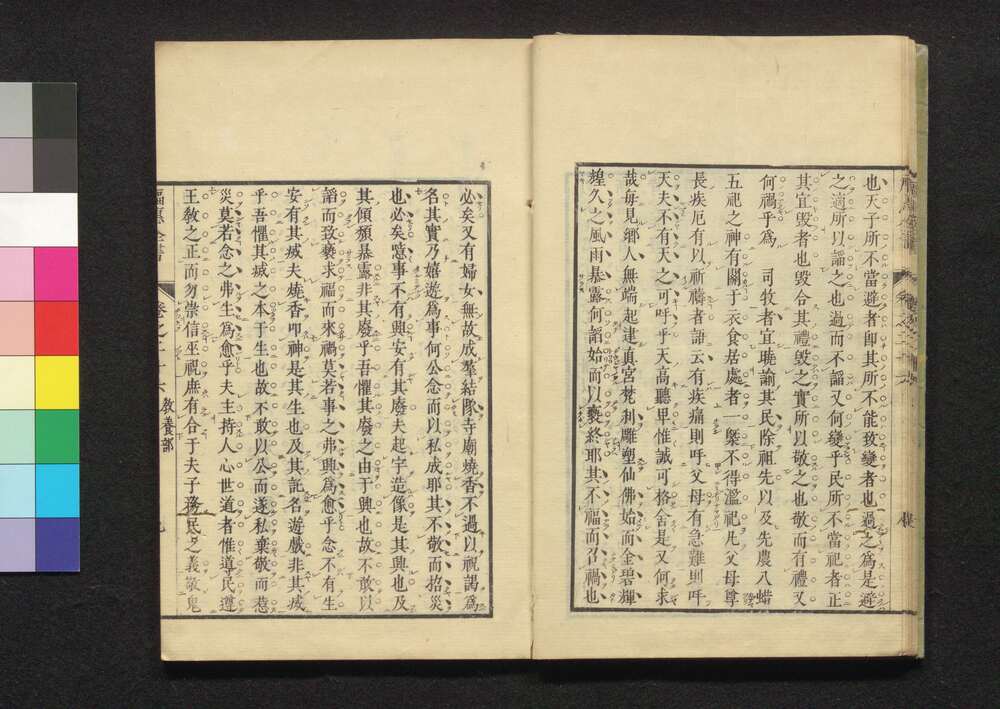 也天子所不當避者即其所不能致變者也過之爲是避
之適所以諂之也過而不諂又何變乎民所不當祀者正
其宜毀者也毀合其禮毀之實所以敬之也敬而有禮又
何禍乎爲 司牧者宜曉諭其民除祖先以及先農八蜡
五祀之神有關于衣食居處者一槩不得濫祀凡父母尊
長疾厄有以祈禱者語云有疾痛則呼父母有急難則呼
天夫不有天之可呼乎天高聽卑惟誠可格舍是又何求
哉每見鄉人無端起建眞宮梵刹雕塑仙佛始而金碧輝
煌久之風雨暴露何諂始而以褻終耶其不福而召禍也
必矣又有婦女無故成羣結隊寺廟燒香不過以祝謁爲
名其實乃嬉遊爲事何公念而以私成耶其不敬而招災
也必矣噫事不有興安有其廢夫起宇造像是其興也及
其傾頹暴露非其廢乎吾懼其廢之由于興也故不敢以
諂而致褻求福而來禍莫若事之弗興爲愈乎念不有生
安有其滅夫燒香叩神是其生也及其託名遊戲非其滅
乎吾懼其滅之本于生也故不敢以公而遂私棄敬而惹
災莫若念之弗生爲愈乎夫主持人心世道者惟導民遵
王教之正而勿崇信巫覡庶有合于夫子務民之義敬鬼
福惠全書 卷之二十六 教養部 九